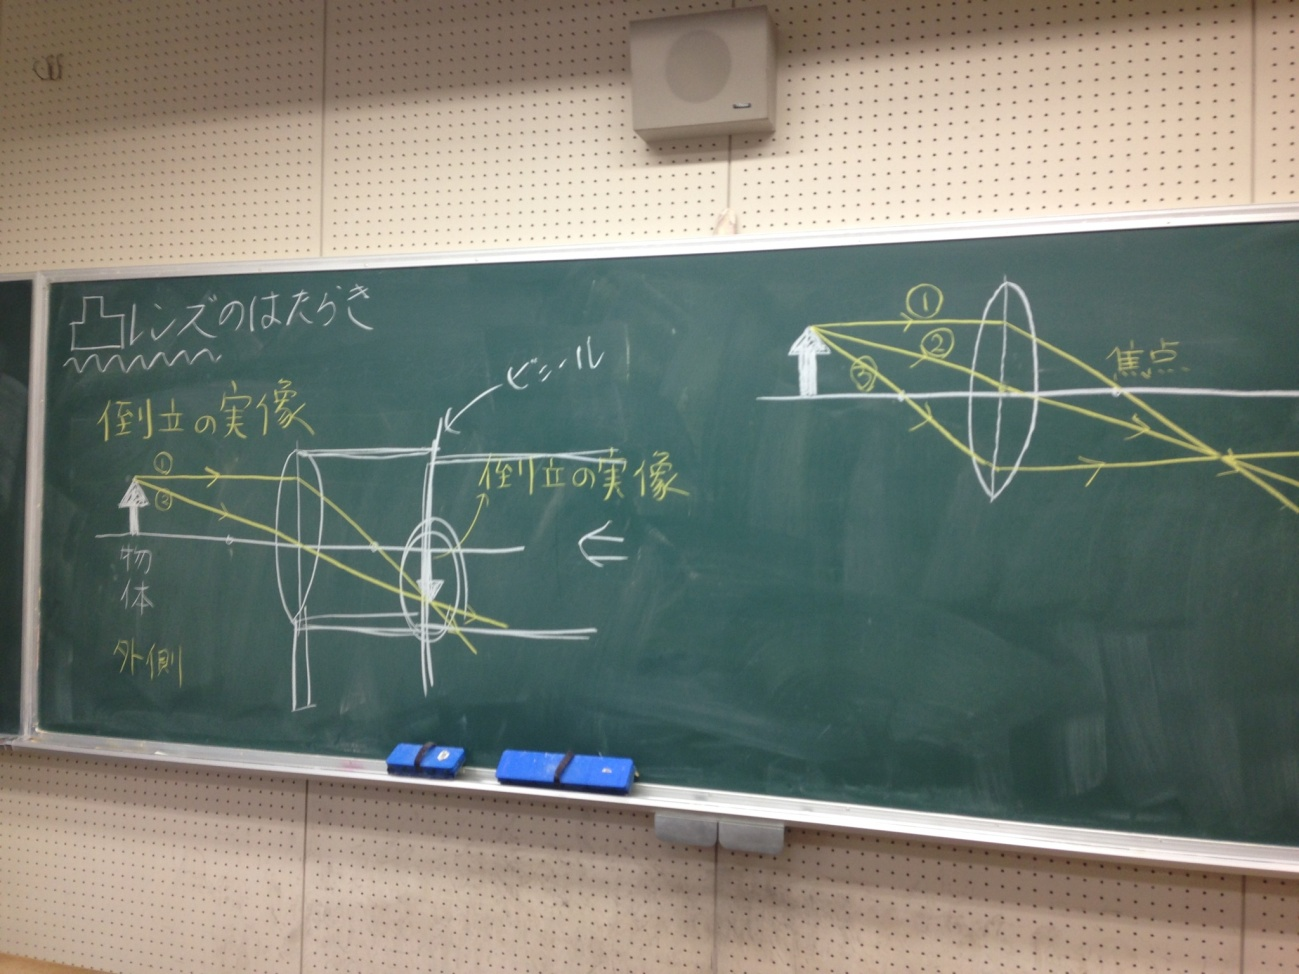 凸レンズのはたらき
倒立の実像
ビニール
倒立の実像
①
②
物体
外側
①
②
③
焦点